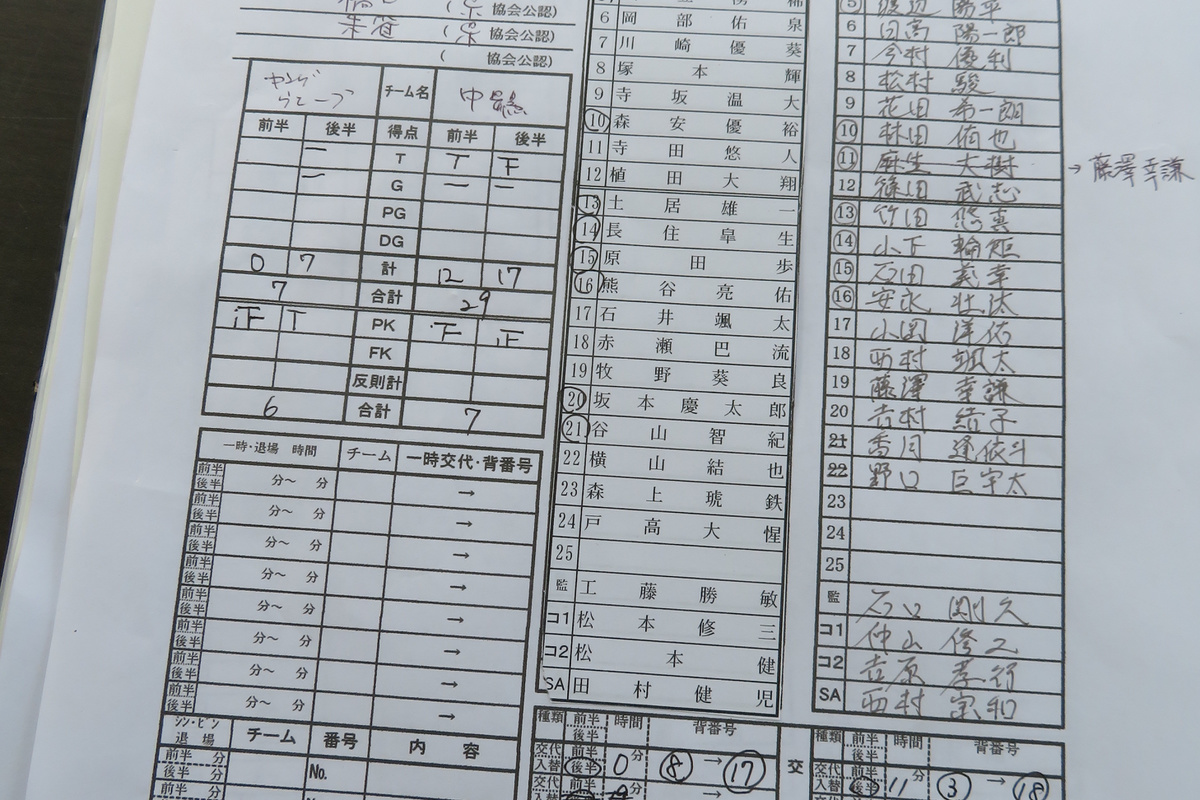 協会公認)
朱雀 ( 協会公認)
( 協会公認)
ヤング
ウェーブ チーム名 中鶴
前半 後半 得点 前半 後半
一 T T 下
一 G 一 一
PG
DG
0 7 計 12 17
7 合計 29
正 T PK 下 正
FK
反則計
6 合計 7
一時・退場 時間 チーム 一時交代・背番号
前半
後半 分～ 分 →
前半
後半 分～ 分 →
前半
後半 分～ 分 →
前半
後半 分～ 分 →
前半
後半 分～ 分 →
前半
後半 分～ 分 →
前半
後半 分～ 分 →
前半
後半 分～ 分 →
シン・ビン
退場 チーム 番号 内容
前半 分
後半 分 No.
前半 分
6 岡部佑泉
7 川崎優葵
8 塚本輝
9 寺坂温大
10 森安優裕
11 寺田悠人
12 植田大翔
13 土居雄一
14 長住皐生
15 原田歩
16 熊谷亮佑
17 石井颯太
18 赤瀬巴流
19 牧野葵良
20 坂本慶太郎
21 谷山智紀
22 横山結也
23 森上琥鉄
24 戸高大惺
25
監 工藤勝敏
コ1 松本修三
コ2 松本健
SA 田村健児
5 渡辺 陽平
6 日高 陽一郎
7 今村 優利
8 松村 駿
9 花田 希一朗
10 林田 侑也
11 麻生 大樹 → 藤澤幸謙
12 篠田 武志
13 竹田 悠真
14 山下 輪矩
15 石田 義幸
16 安永 壮汰
17 山岡 洋佑
18 西村 颯太
19 藤澤 幸謙
20 吉村 結子
21 香月 逢依斗
22 野口 巨宇太
23
24
25
監 石口 剛久
コ1 仲山 修
コ2 吉原 孝行
SA 西村 宗和
種類 前半
後半 時間 背番号
交代
入替 前半
後半 0分 8 → 17
交代
入替 前半 分 →
交
種類 前半
後半 時間 背番号
交代
入替 前半
後半 11分 3 → 18